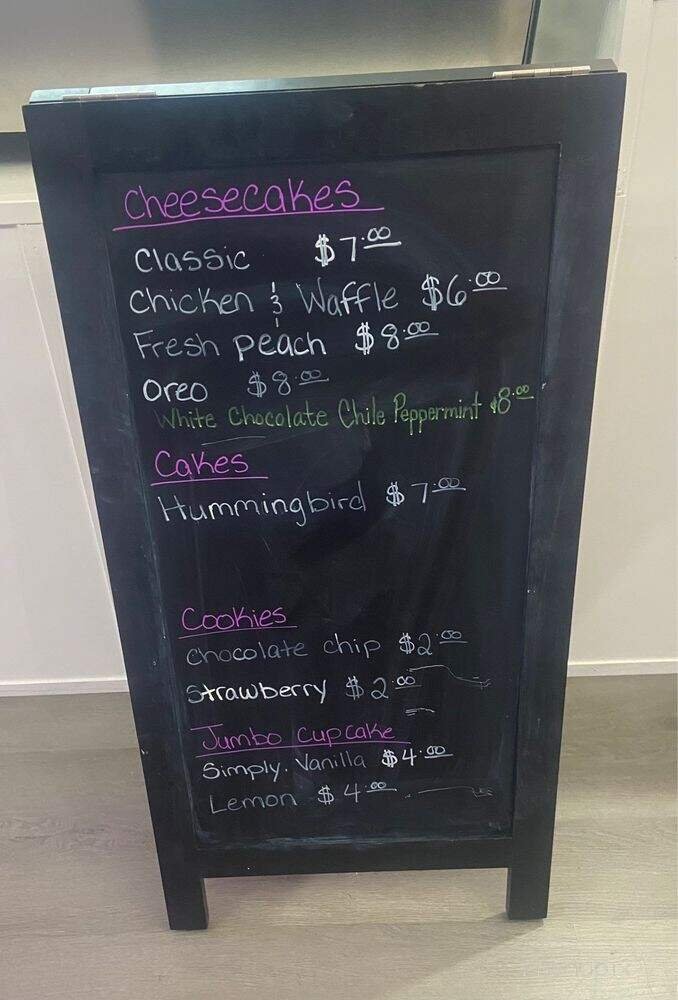 Cheesecakes
Classic $7.00
Chicken & Waffle $6.00
Fresh peach $8.00
Oreo $8.00
White Chocolate Chile Peppermint $8.00
Cakes
Hummingbird $7.00
Cookies
Chocolate chip $2.00
Strawberry $2.00
Jumbo Cupcake
Simply. Vanilla $4.00
Lemon $4.00